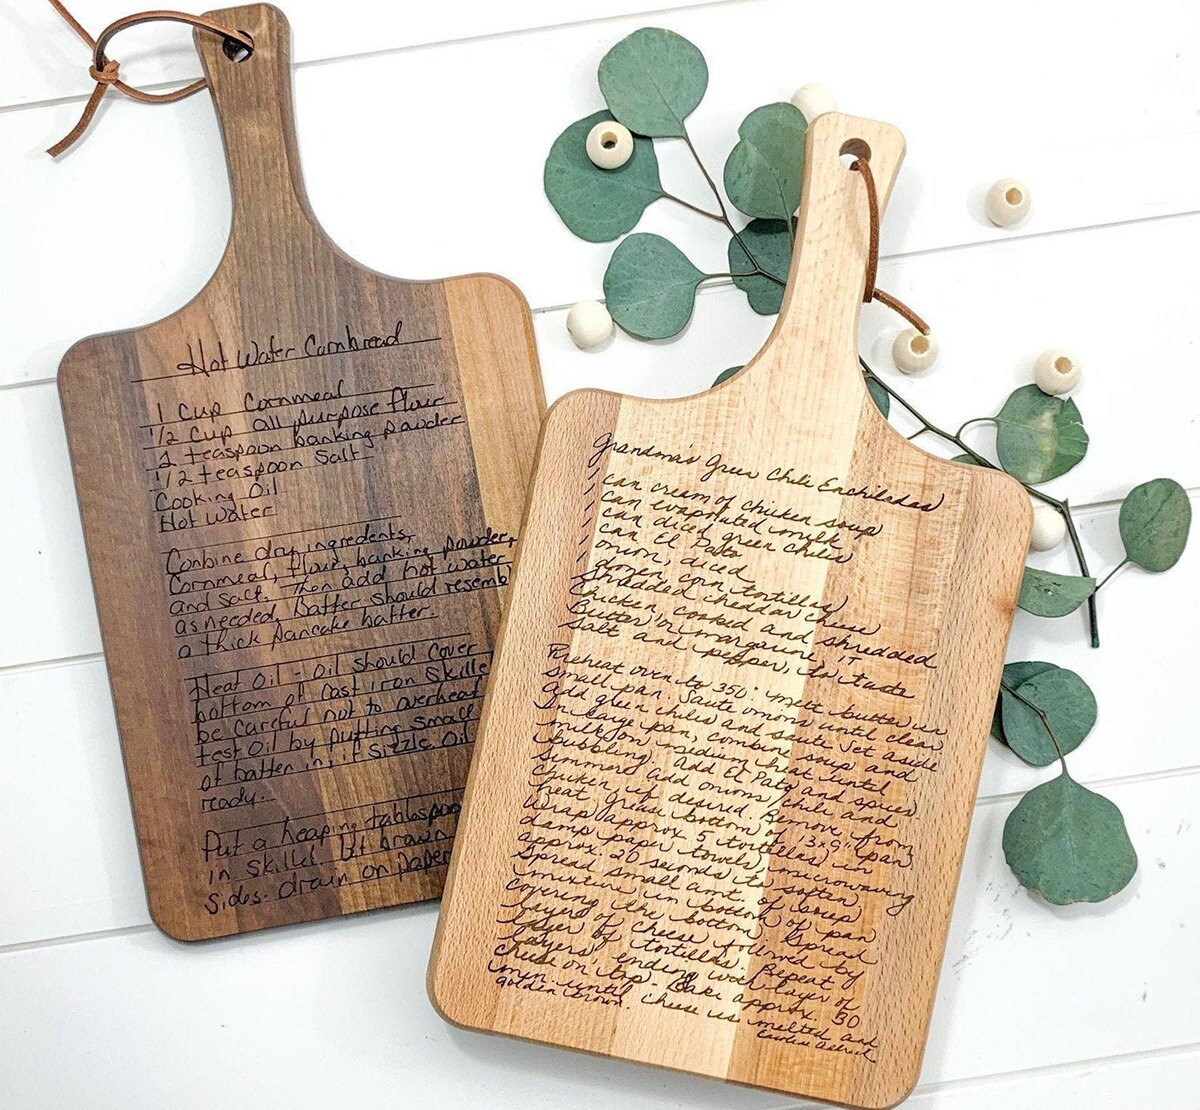 Hot Water Cornbread
1 Cup Cornmeal
1/2 Cup all purpose flour
1 teaspoon banking powder
1/2 teaspoon Salt
Cooking Oil
Hot Water
Conbine dry ingredents,
Cornmeal, flour, banking powder,
and salt. Then add hot water
as needed, Batter should resembl
a thick pancake batter.
Heat Oil - Oil should cover
bottom of Cast iron Skille
be Careful not to overheat
test Oil by putting small
of batter in, if sizzle Oil
ready.
Put a heaping tablespoo
in skillet. Let brown
sides. drain on paper
Grandma's Green Chili Enchiladas
1 can cream of chicken soup
1 can evaporated milk
1 can diced green chilis
1 can El Pato
1 onion, diced
1 dozen corn tortillas
Shredded cheddar cheese
Chicken, cooked and shredded
Butter or margarine
Salt and pepper, to taste
Preheat oven to 350°. Melt butter in
small pan. Sauté onions until clear,
add green chilis and sauté. Set aside
In large pan, combine soup and
milk on medium heat until
bubbling. Add El Pato and spices,
simmer. Add onions, chili and
chicken if desired. Remove from
heat. Grease bottom of 13x9" pan.
Wrap approx 5 tortillas in
damp paper towels, microwaving
approx. 20 seconds to soften.
Spread small amt. of soup
mixture in bottom of pan
covering the bottom. Spread
layer of cheese followed by
layer of tortillas. Repeat
layers ending with layer of
cheese on top. Bake approx. 30
min until cheese is melted and
golden brown.